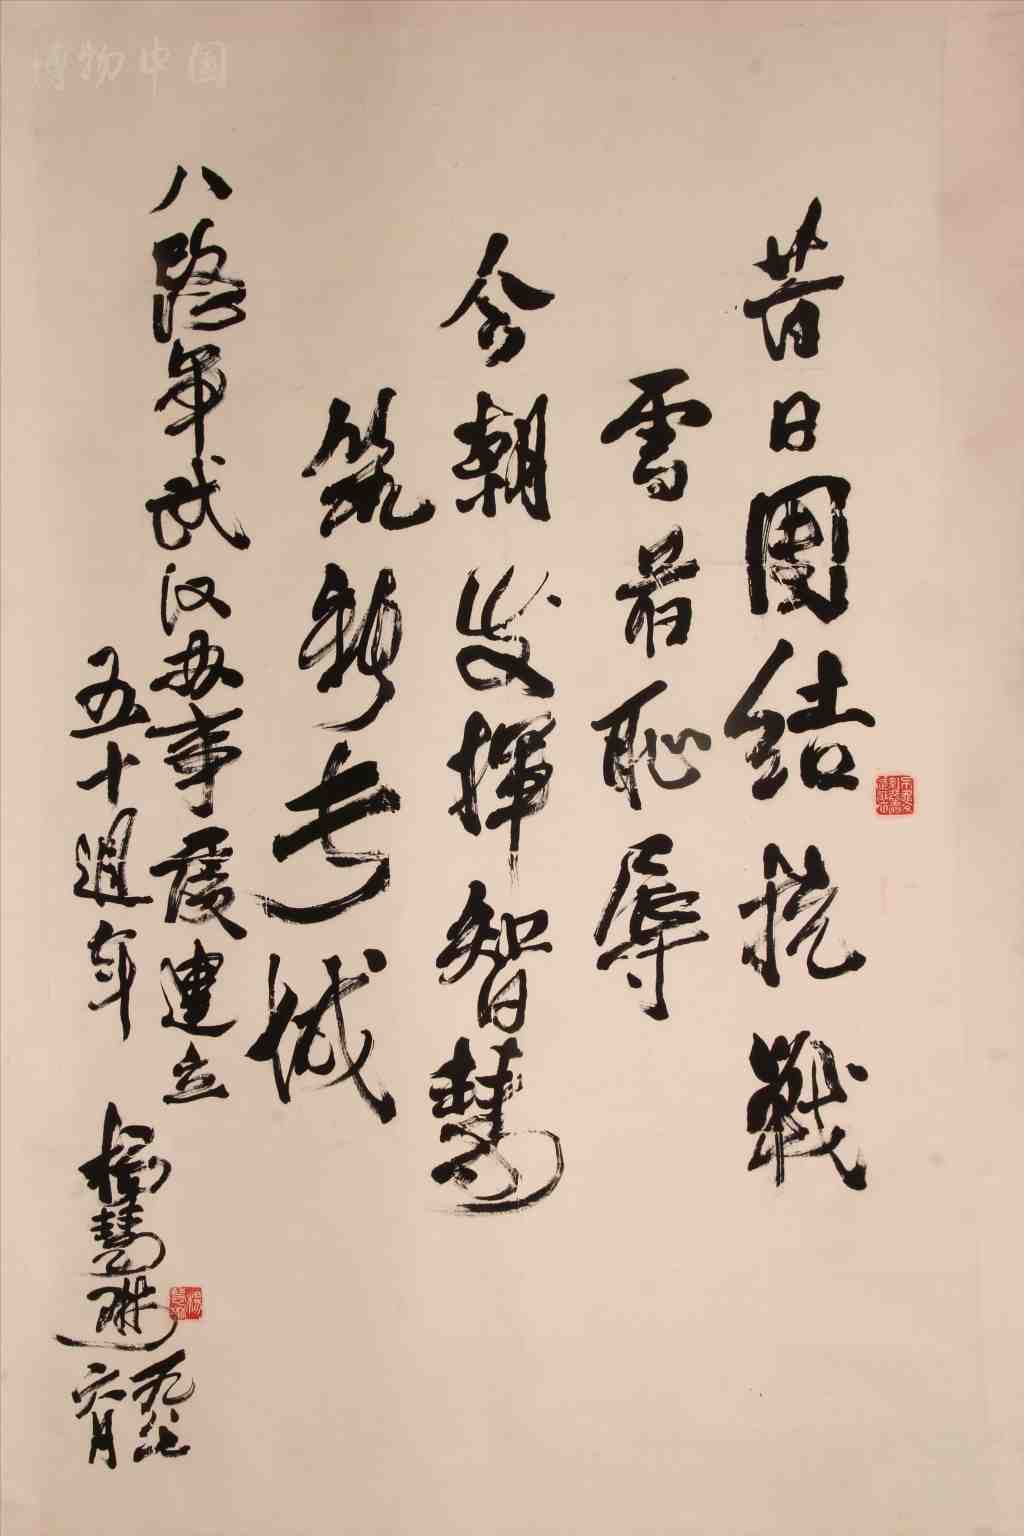 博物中国
昔日團结抗戰
雪前恥辱
今朝发揮智慧
筑新长城
八路军武汉办事處建立
五十週年
杨慧琳
九八七
六月